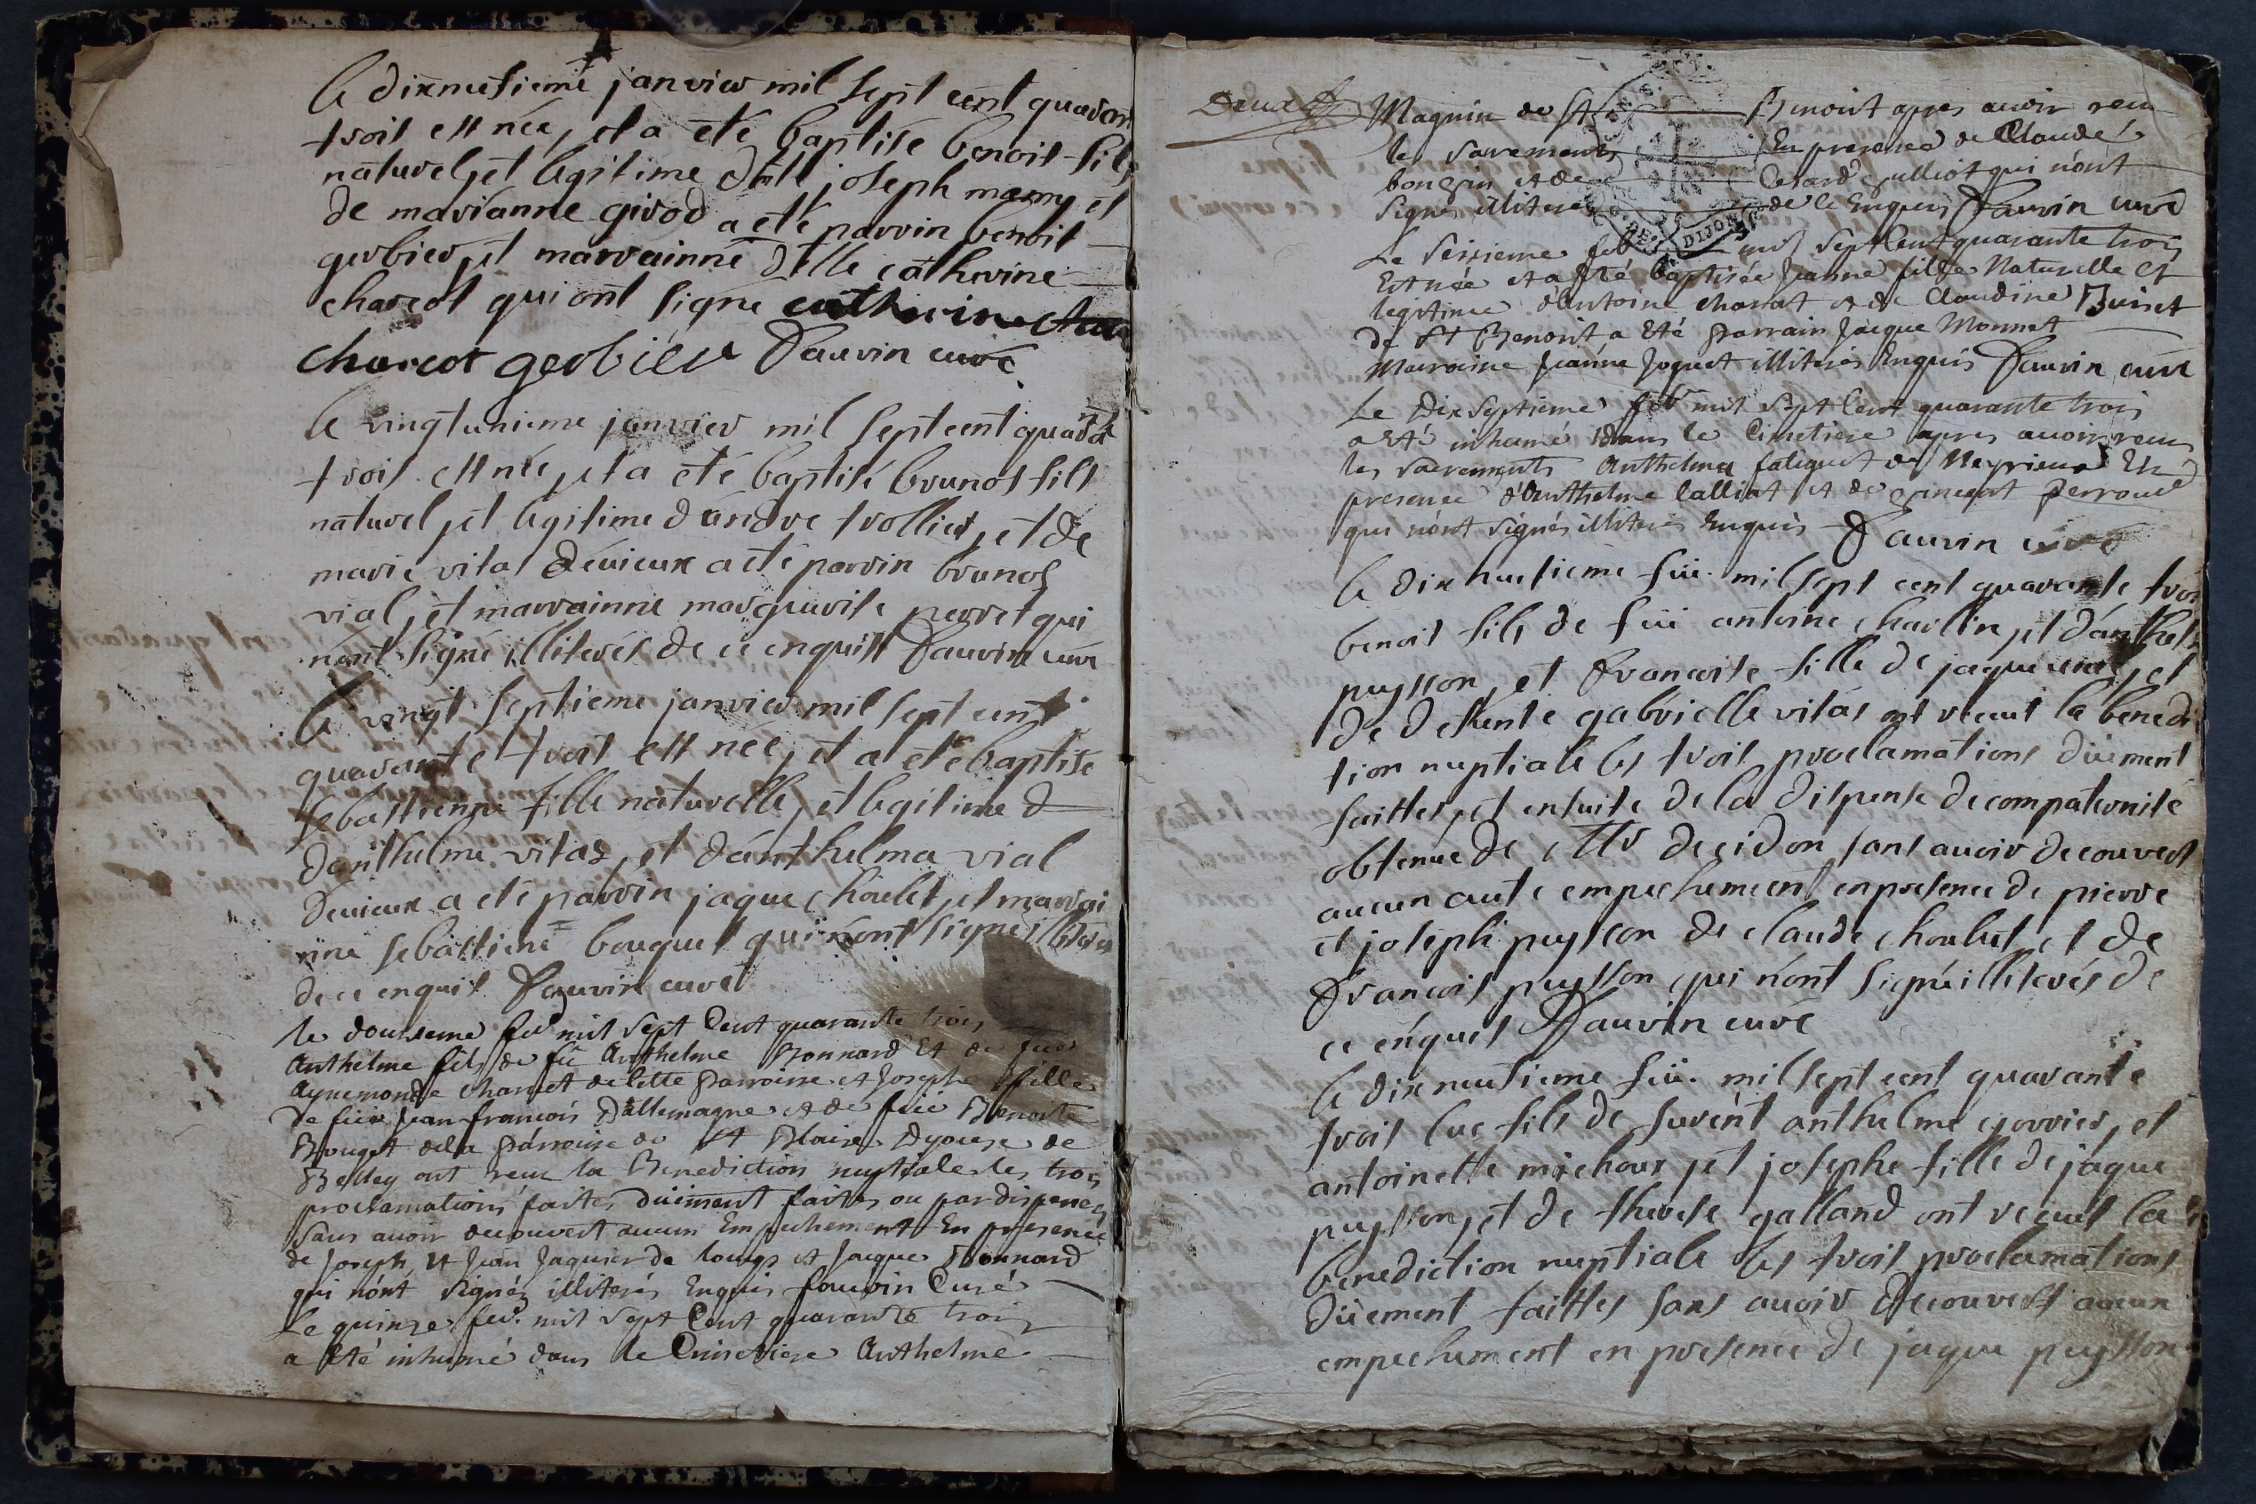 le dixneufieme janvier mil sept cent quaran
trois est née, et a eté baptisé benoit fils
naturel, et legitime joseph mamy et
de marianne girod a eté parrin benoit
gerbier, et marrainne dlle catherine
charcot qui ont signé catherine
charcot gerbier fauvin curé
le vingtunieme janvier mil sept cent quaran
trois est née, et a eté baptisé brunot fils
naturel, et legitime d'andre trollier, et de
marie vital d'evieux a eté parrin brunot
vial, et marrainne margueritte perret qui
n'ont signé illiterés de ce enquist fauvin curé
le vingt septieme janvier mil sept cent
quarante trois est née, et a eté baptisé
sebastienne fille naturelle, et legitime d
d'anthelme vitaz, et d'anthelma vial
d'evieux a eté parrin jaque choulet, et marrai
nne sebastiene bouquet qui n'ont signé illiteres
de ce enquis fauvin curé
le douzieme fev mil sept Cent quarante trois
Anthelme fils de fû Anthelme Bonnard Et de fue
Aynemonde Charvet de Cette parroisse et Josephe fille
de fue Jean francois Dallemagne et de fuë Benoite
Bouget de la parroisse de St Blaise Dyocese de
Belley ont reçu la Benediction nuptiale les trois
proclamations faites duëment faites ou par dispence
sans avoir decouvert aucun Empechement En presence
de Joseph, et Jean Jaquier de louys et Jacque Bonnard
qui n'ont signés illiterés Enquis fauvin Curé
Le quinze fev. mil sept Cent quarante trois
a Eté inhumé dans le Cimetiere Anthelme
Deux Magnin de St Benoit apres avoir reçu
les sacrements En presence de Claude
bouzin et de Cesard Julliot qui n'ont
signés illiterés de Ce Enquis fauvin curé
Le seizieme feb mil sept Cent quarante trois
Est née et a Eté Baptisée Jeanne fille Naturelle et
legitime d'Antoine charat et de Claudine Buinet
de St Benoit a Eté parrain Jacque Monnet
Marraine Jeanne Joguet illiterés Enquis fauvin curé
Le Dix septieme feb mil sept Cent quarante trois
a Eté inhumé dans le Cimetiere apres avoir reçu
les sacrements Anthelma fatiguet de Meyrieux En
presence d'Anthelme lalliat et de vincent perroud
qui n'ont signés illiterés Enquis fauvin curé
le dix huitieme fev. mil sept cent quarante trois
benoit fils de fû antoine chaillin, et d'anthel
puysson, et francoise fille de jaque et
de defunte gabrielle vitas ont recut la benedi
tion nuptiale les trois proclamations duëment
faittes, et ensuite de la dispense de compaternité
obtenue de Mr sans avoir decouvert
aucun aute empechement en presence de pierre
et joseph puysson de claude choulet, et de
francois puysson qui n'ont signé illiterés de
ce enquis fauvin curé
le dix neufieme fev. mil sept cent quarante
trois luc fils de furent anthelme gorrier, et
antoinette michoux, et josephe fille de jaque
puysson, et de therese galland ont recut la
benediction nuptiale les trois proclamations
duëment faittes sans avoir decouvert aucun
empechement en presence de jaque puysson